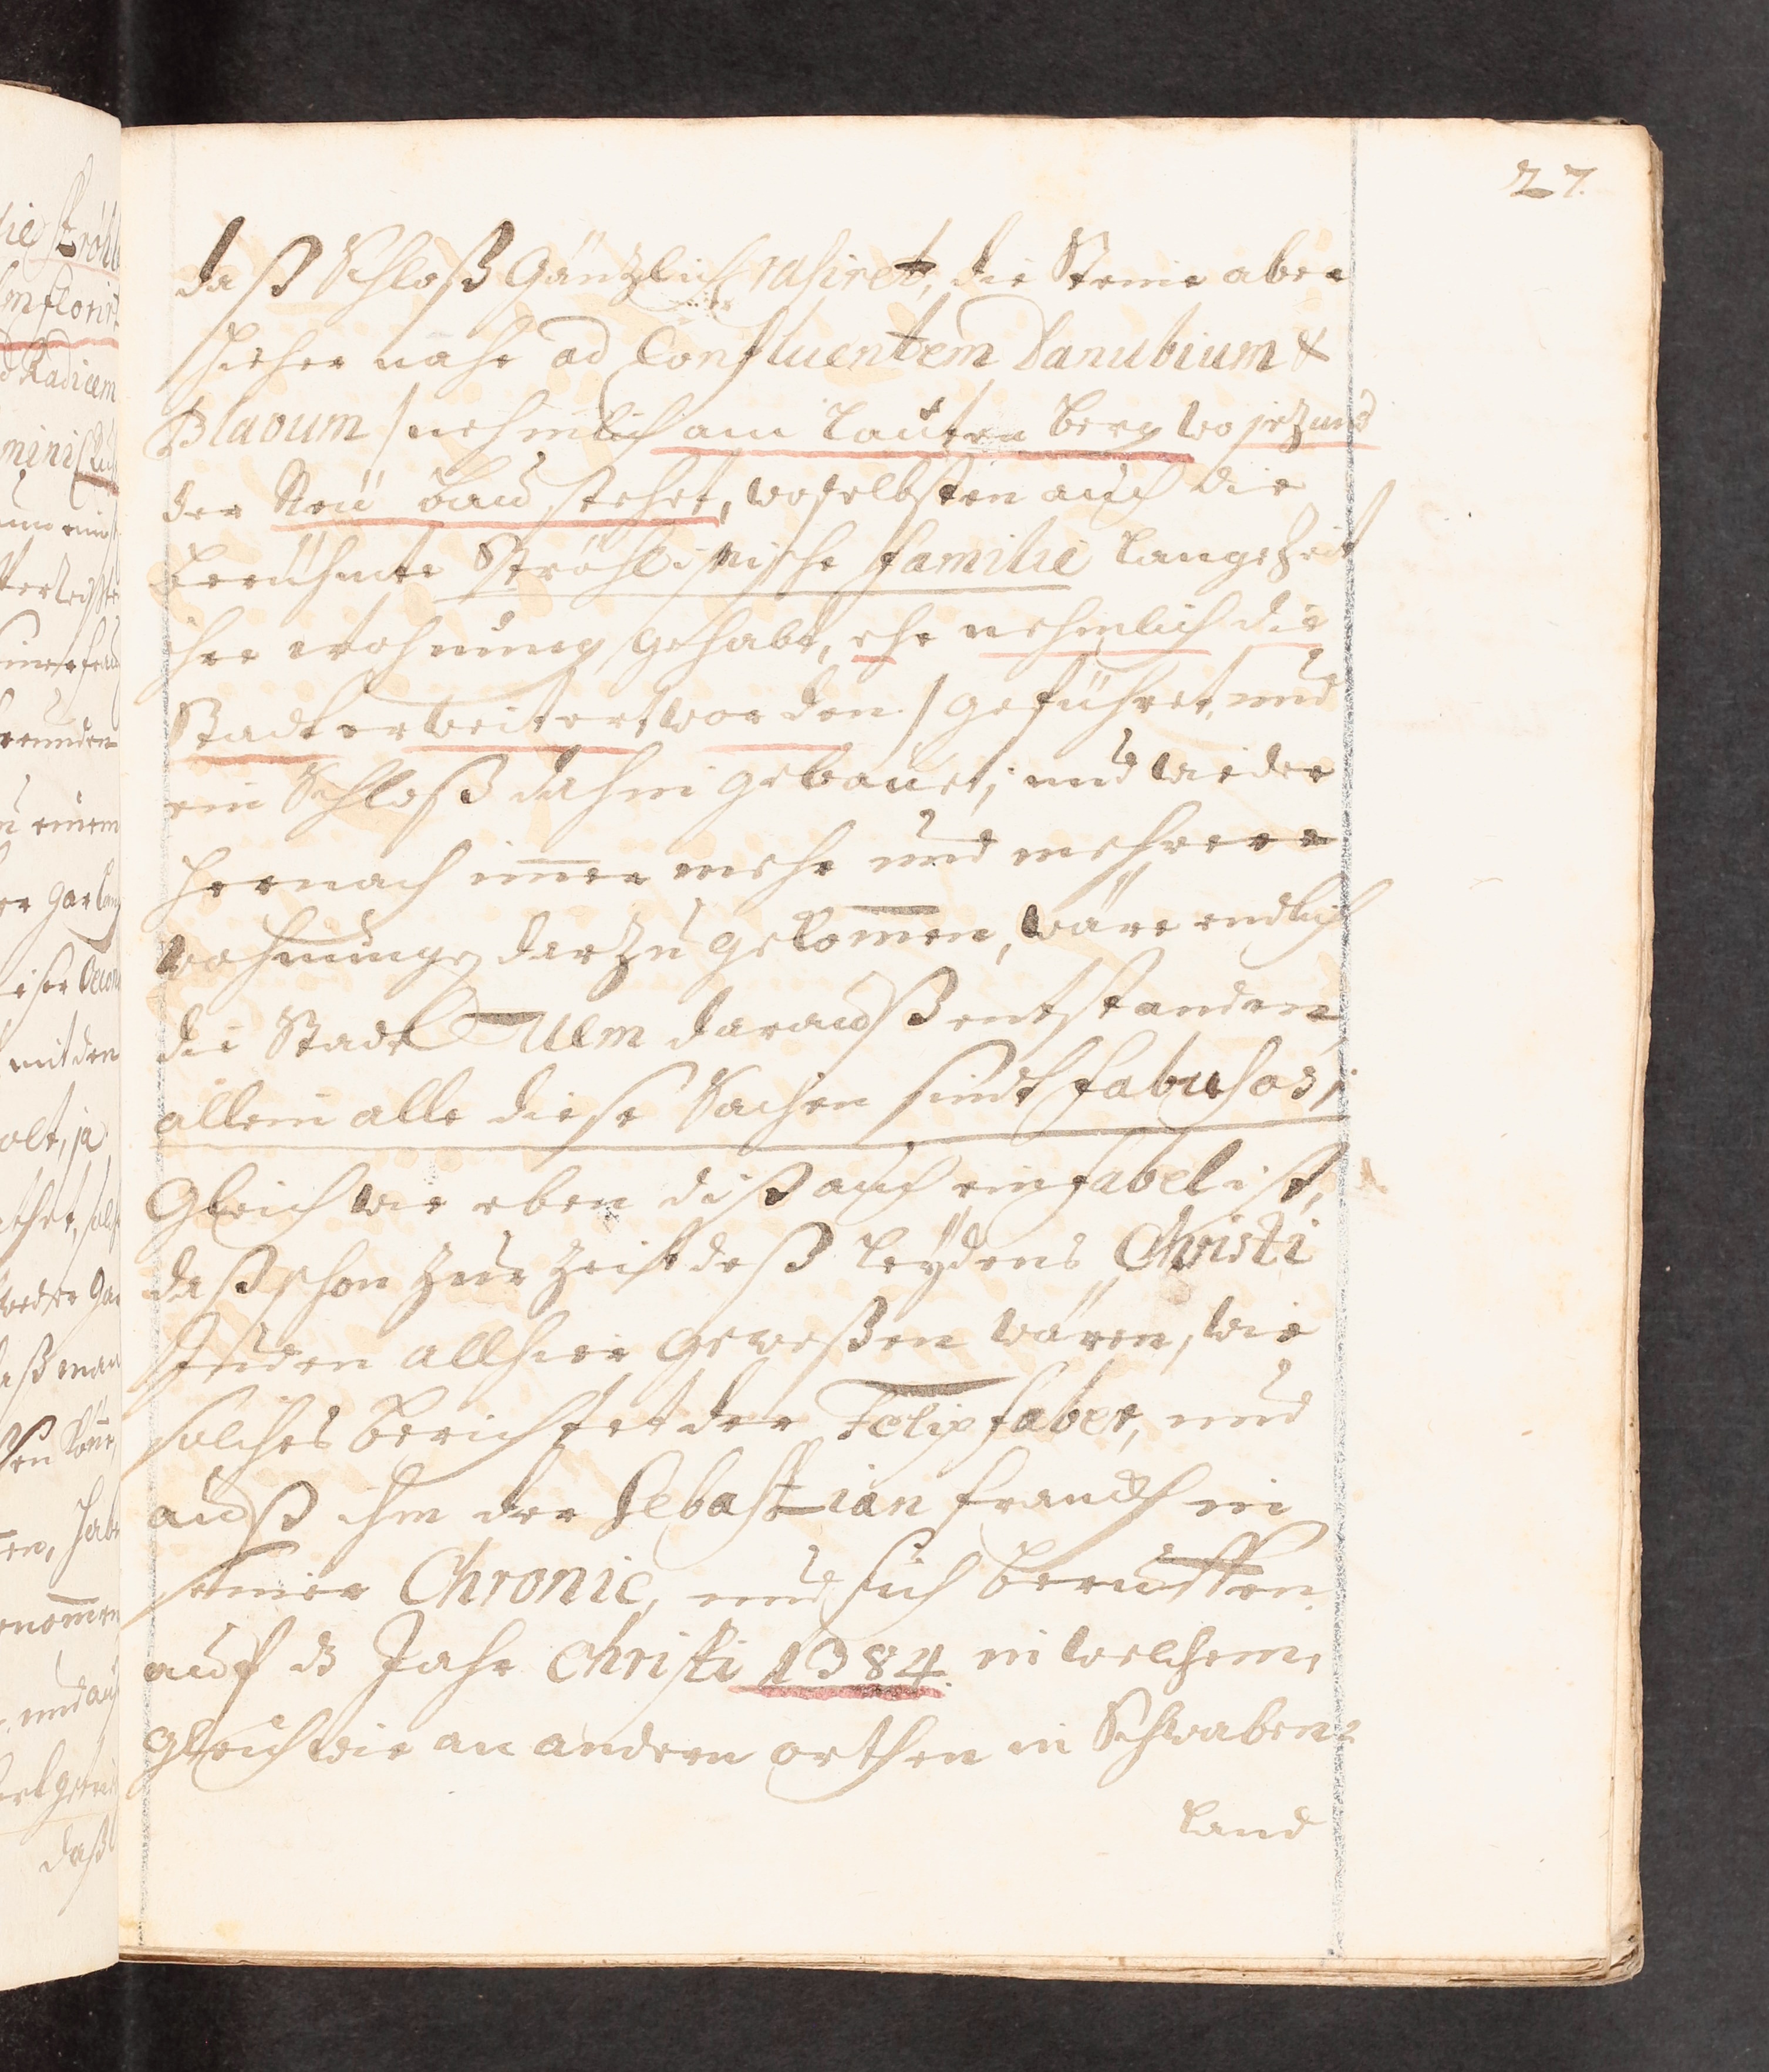 27.
daß Schloß Gäntzlich rasiret, die Steine aber
hieher nahe ad Confluentem Danubium &
Blavum / nehmlich am Lauten berg wo jezund
der Neü bau stehet, woselbsten auch die
berühmte Ströhlinische familie lange Zeit
ihre wohnung gehabt, ehe nehmlich die
Stadt erweitert worden / geführet, und
ein Schloß dahin gebauet, und wieder
hernach im̅er mehr und mehrere
wohnunge darzu gekom̅en, wäre endlich
die Stadt Ulm darauß entstanden,
allein alle diese Sachen sindt fabulos,
Gleich wie eben diß auch ein fabel ist,
daß schon zur Zeit deß Leÿdens Christi
Juden allhier geweßen wären, wie
solches berichtet der Felix faber, und
auß ihm der Sebastian franckh in
seiner Chronic, und sich beruffen
auf dz Jahr Christi 1384. in welchem,
gleich wie an andern orthen in Schwaben=
Land